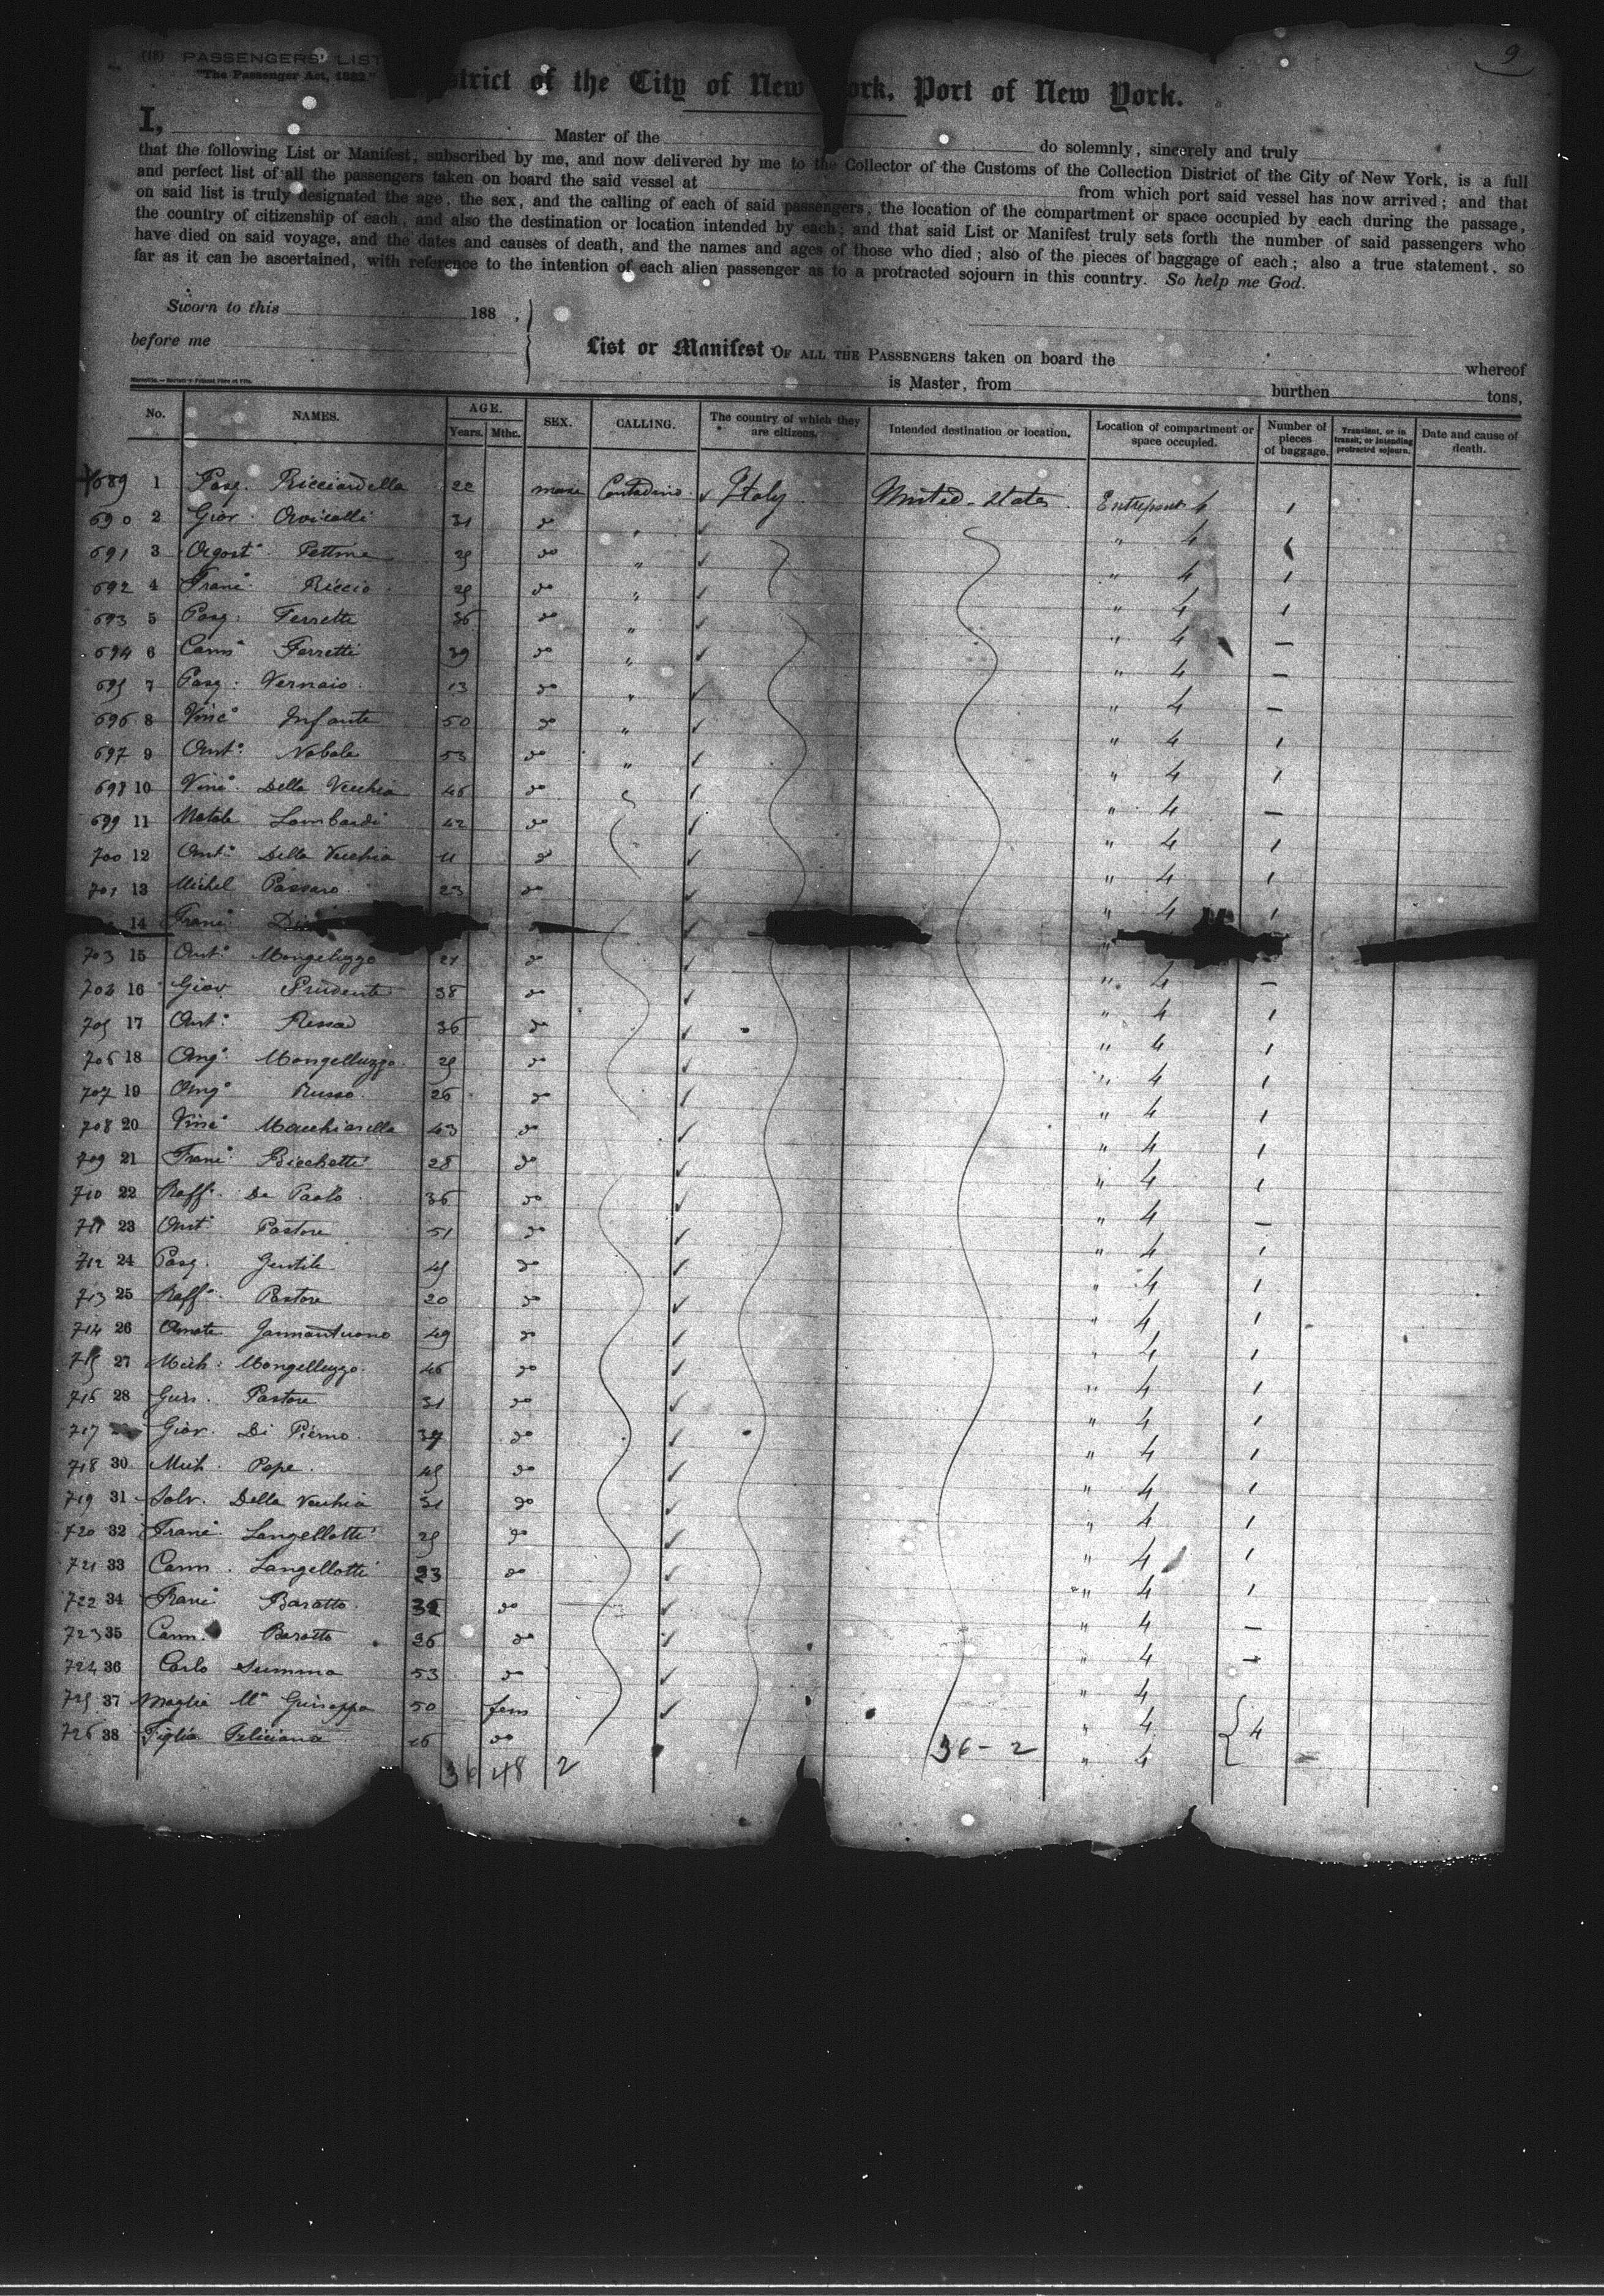 9
(18) PASSENGERS' LIST
"The Passenger Act, 1882."
strict of the City of New ork, Port of New York.
I, Master of the do solemnly, sincerely and truly
that the following List or Manifest, subscribed by me, and now delivered by me to the Collector of the Customs of the Collection District of the City of New York, is a full
and perfect list of all the passengers taken on board the said vessel at from which port said vessel has now arrived; and that
on said list is truly designated the age, the sex, and the calling of each of said passengers, the location of the compartment or space occupied by each during the passage,
the country of citizenship of each, and also the destination or location intended by each; and that said List or Manifest truly sets forth the number of said passengers who
have died on said voyage, and the dates and causes of death, and the names and ages of those who died; also of the pieces of baggage of each; also a true statement, so
far as it can be ascertained, with reference to the intention of each alien passenger as to a protracted sojourn in this country. So help me God.
Sworn to this 188 ,
before me
List or Manifest OF ALL THE PASSENGERS taken on board the whereof
is Master, from burthen tons,
No. NAMES. AGE. Years. Mthc. SEX. CALLING. The country of which they are citizens. Intended destination or location. Location of compartment or space occupied. Number of pieces of baggage. Transient, or in transit, or intending protracted sojourn. Date and cause of death.
689 1 Pasq. Ricciardella 22 Contadino Italy United-States Entrepont 4 1
690 2 Giov. 31 do " 4
691 3 Pettine 29 do " " 4 1
692 4 Franc° Riccio 29 do " " 4 1
693 5 Pasq: Ferretti 36 do " " 4 -
694 6 Carm° Ferretti 39 do " " 4 -
695 7 Pasq: Vernaio 13 do " " 4 -
696 8 Vinc° Infante 50 do " " 4 1
697 9 Ant° Nobole 53 do " " 4 1
698 10 Vinc° Della Vecchia 46 do " 4 -
699 11 Natale Lombardi 42 do " 4 1
700 12 Ant° Della Vecchia 11 do " 4 1
701 13 Michel Passaro 23 do " 4 1
14 Franc°
703 15 Ant° Mongeluzzo 21 do " 4 -
704 16 Giov Prudente 38 do " 4 1
705 17 Ant° 36 do " 4 1
706 18 Ang° Mongelluzzo 29 do " 4 1
707 19 Ang° Russo 26 do " 4 1
708 20 Vinc° Macchiarella 43 do " 4 1
709 21 Franc° Bicchetti 28 do " 4 1
710 22 Raff° De Paolo 36 do " 4 -
711 23 Ant° Pastore 51 do " 4 1
712 24 Pasq. Gentile 45 do " 4 1
713 25 Raff° Pastore 20 do " 4 1
714 26 Amato Jannantuono 49 do " 4 1
715 27 Mich: Mongelluzzo 46 do " 4 1
716 28 Pastore 31 do " 4 1
717 Giov. Di Pierno do " 4 1
718 30 Mich. Pepe 45 do " 4 1
719 31 Salv. Della Vecchia 31 do " 4 1
720 32 Franc° Langellotti 29 do " 4 1
721 33 Carm. Langellotti 23 do " 4 1
722 34 Franc° Baratto do " 4 -
723 35 Carm. Baratto 26 do " 4
724 36 Carlo Summa 53 do " 4
725 37 Moglie Ma Giuseppa 50 fem " 4
726 38 Figlia Feliciana 16 do " 4 4
36 48 2 36-2